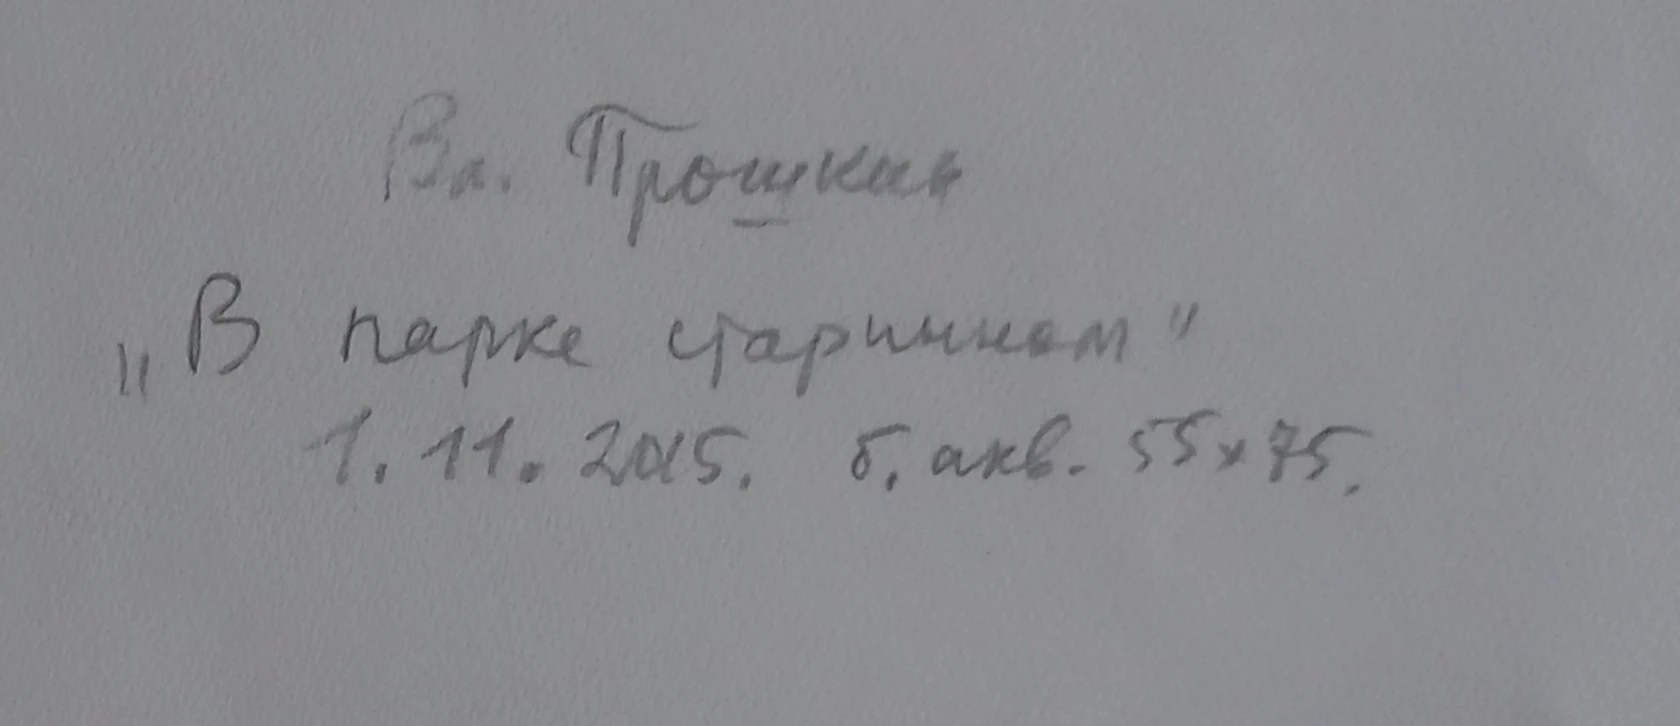 Вл. Прошкин
„В парке старинном"
1.11.2015. б. акв. 55x75.